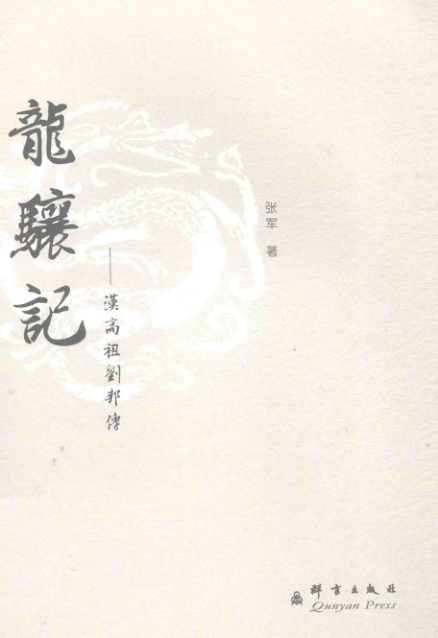 龍驤記
——漢高祖劉邦傳
张军 著
群言出版社
Qunyan Press